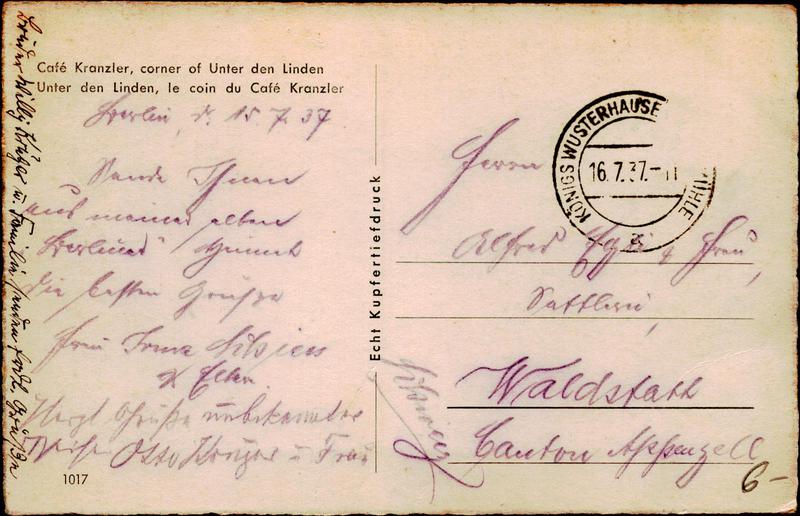 Café Kranzler, corner of Unter den Linden
Unter den Linden, le coin du Café Kranzler
Berlin, d. 15.7.37
Sende Ihnen
aus meiner alten
Berliner Heimat
die besten Grüße
Frau Irma
& Eltern.
Herzl. Grüße unbekannter
Weise Otto Krüger u Frau
1017
Bruder Willy Krüger u. Familie senden herzl. Grüße
Echt Kupfertiefdruck
KÖNIGS WUSTERHAUSE MÜHLE
16.7.37.-11
a
Herrn
Alfred Egli & Frau,
Sattlerei,
Waldstatt
Canton Appenzell
Schweiz
6-